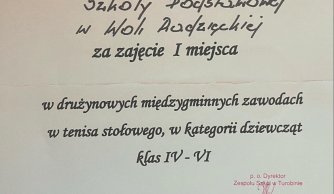 Szkoły Podstawowej
w Woli Radzięckiej
za zajęcie I miejsca
w drużynowych międzygminnych zawodach
w tenisa stołowego, w kategorii dziewcząt
klas IV - VI
p. o. Dyrektor
Zespołu Szkół w Turobinie